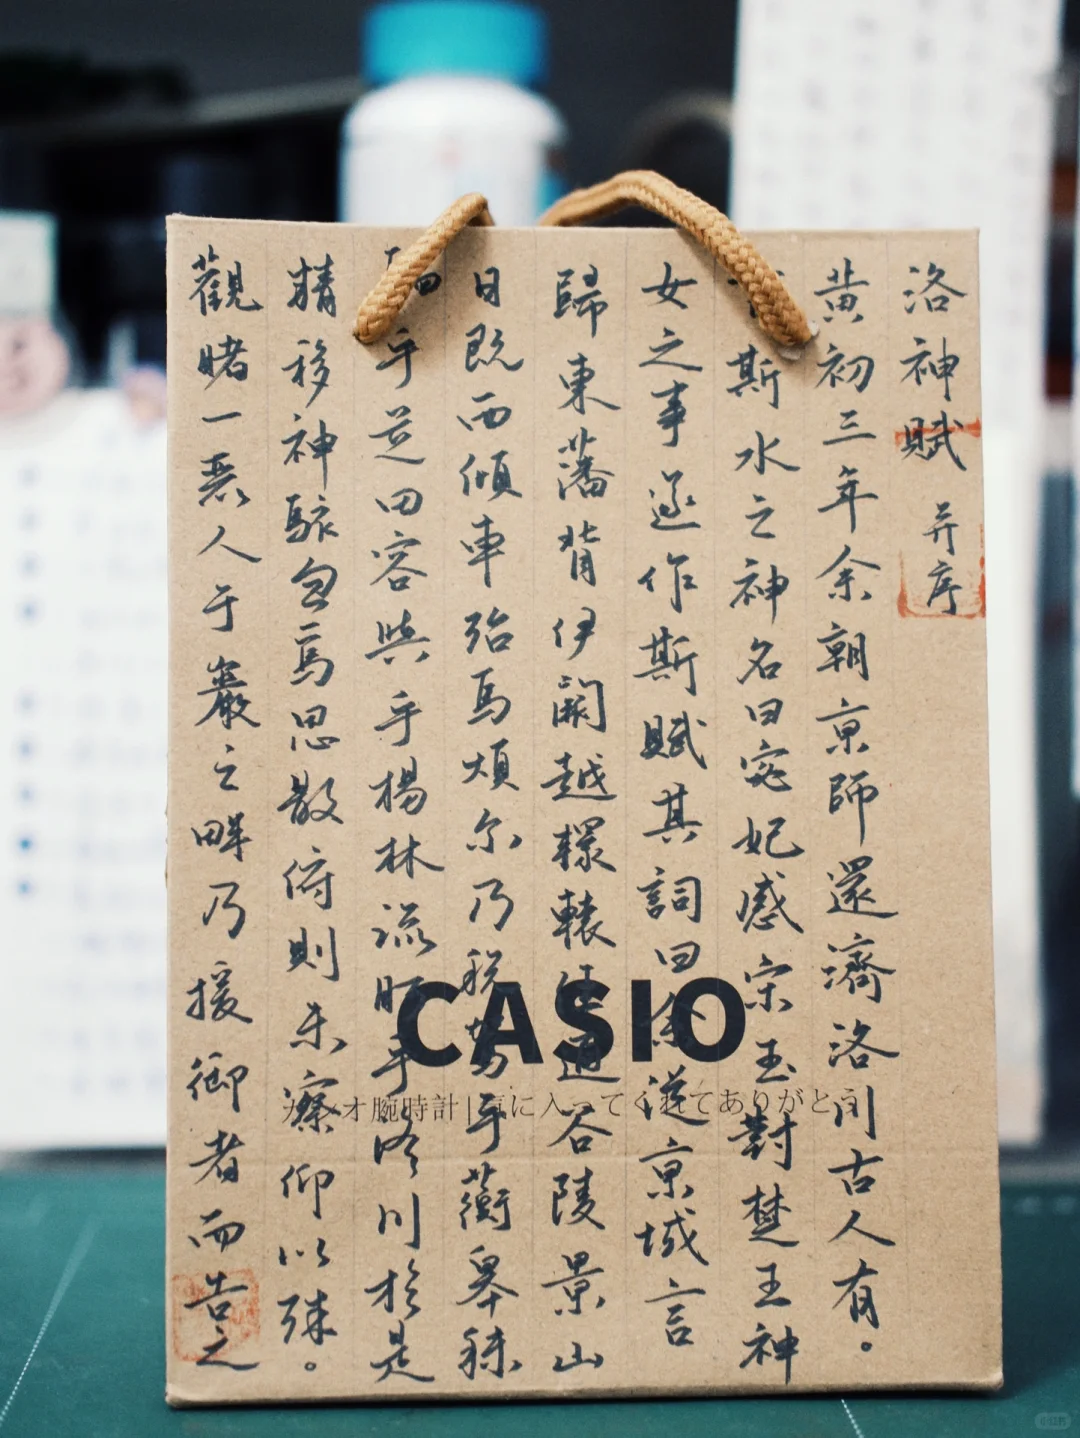 洛神賦 并序
黄初三年余朝京師還濟洛川古人有。
斯水之神名曰宓妃感宋玉對楚王神
女之事遂作斯賦其詞曰余從京城言
歸東藩背伊闕越轘轅經通谷陵景山
日既西傾車殆馬煩尔乃税駕乎蘅皋秣
乎芝田容與乎楊林流眄乎洛川於是
精移神駭忽焉思散俯則未察仰以殊。
觀睹一人于巖之畔乃援御者而告之
CASIO
オ腕時計|気に入ってくれてありがとう